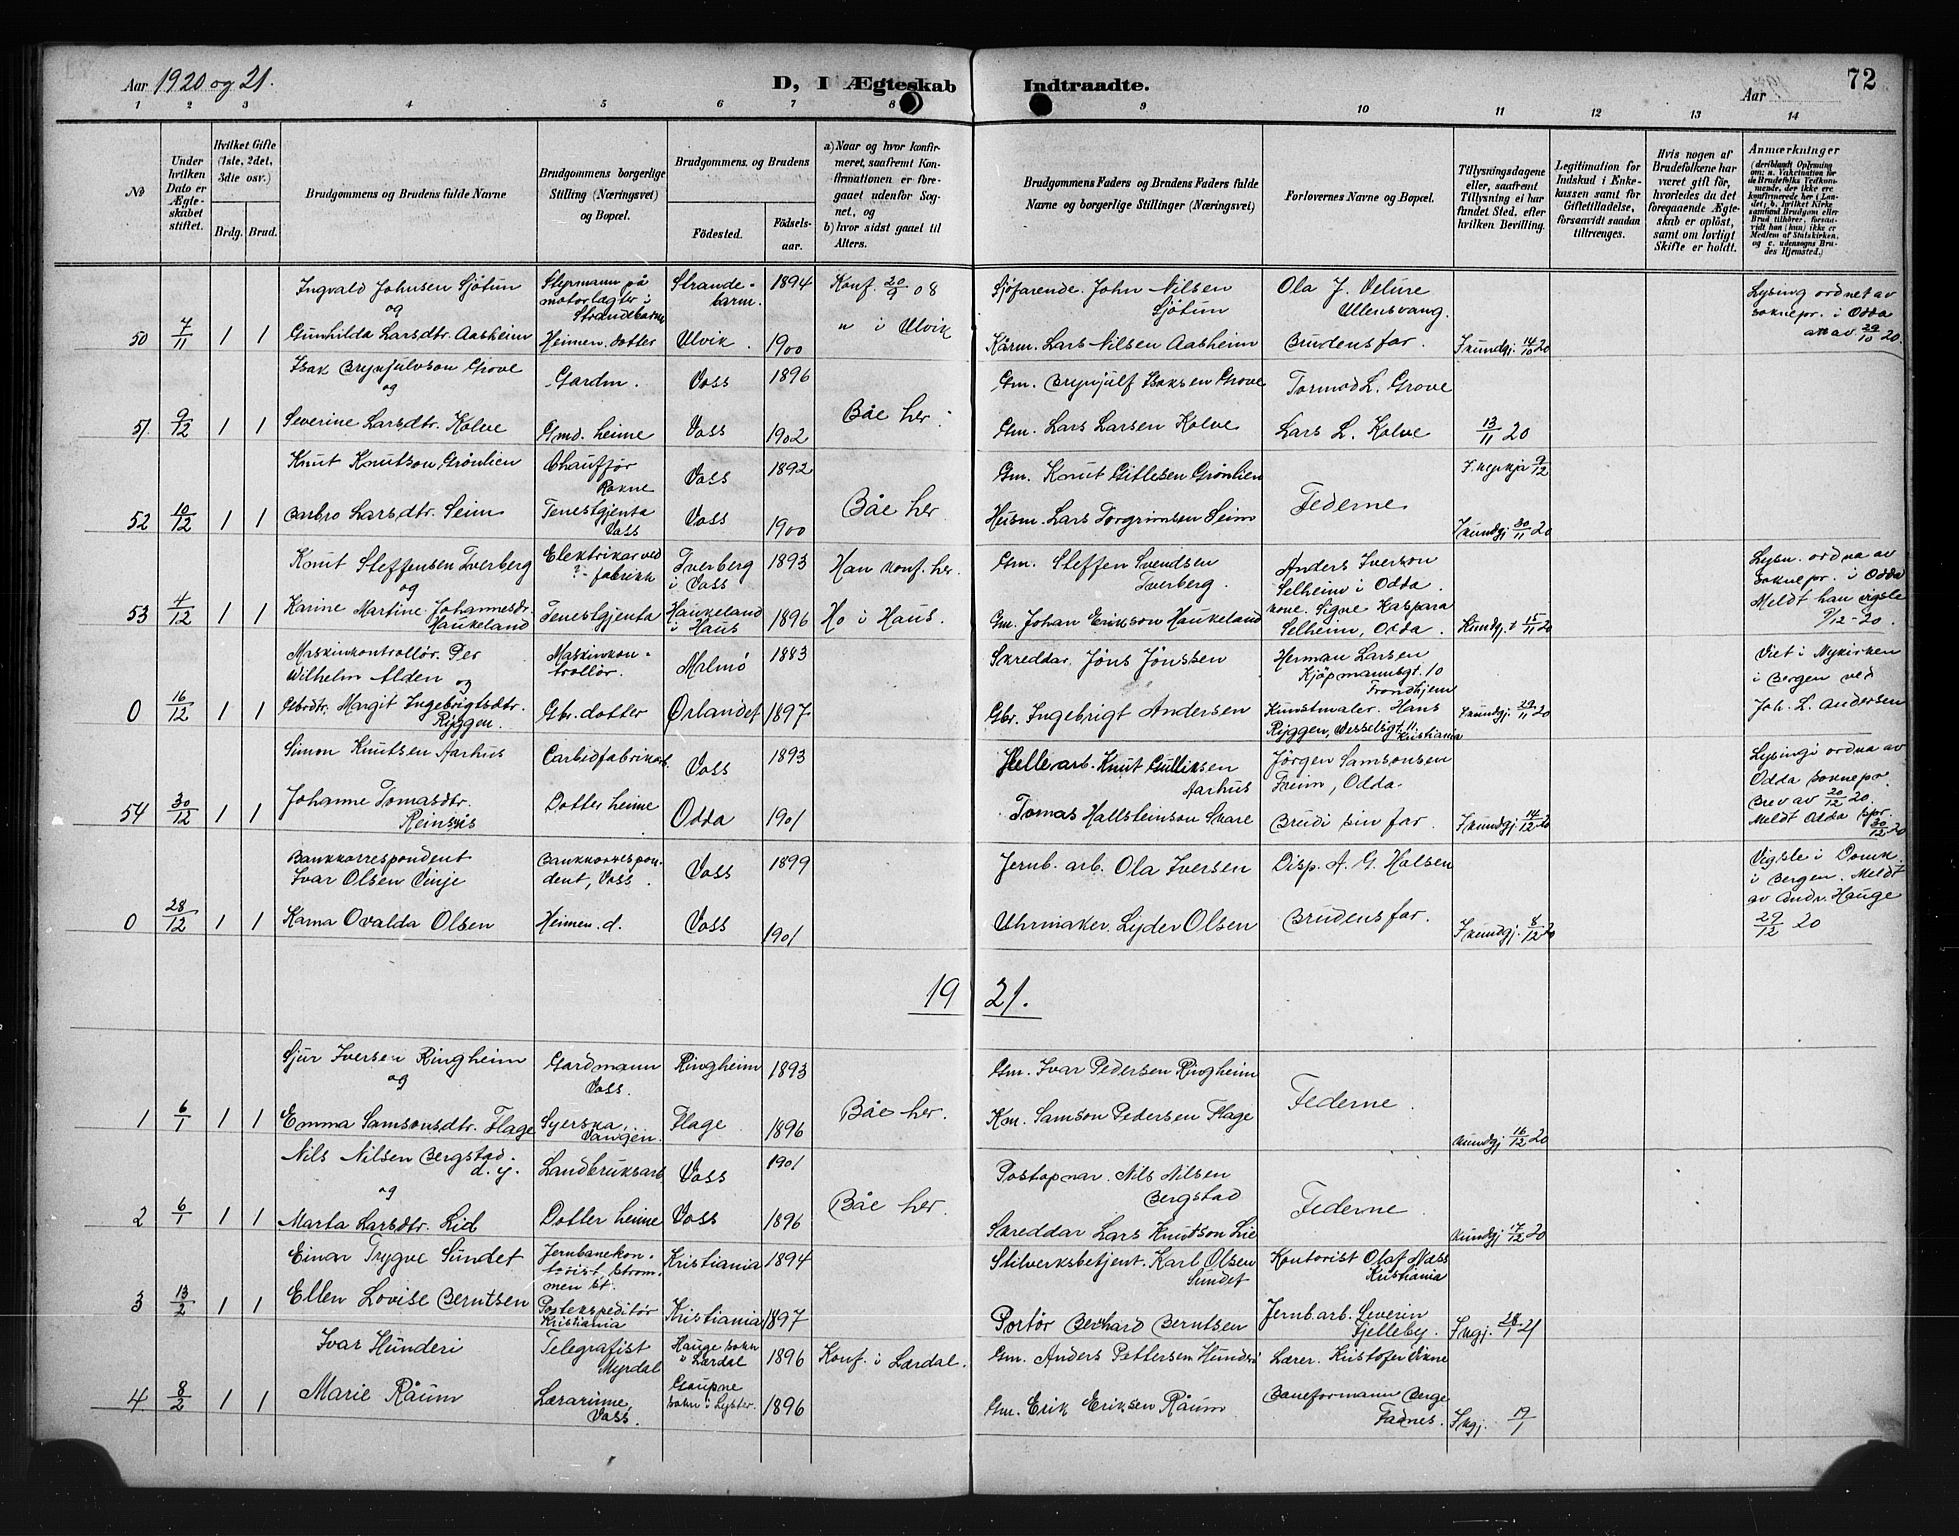 Aar 1920 og 21.
D, I Ægteskab Indtraadte.
Aar
72
1 2 3 4 5 6 7 8 9 10 11 12 13 14
No
Under hvilken Dato er Ægteskabet stiftet.
Hvilket Gifte (1ste, 2det, 3die osv.)
Brdg. Brud.
Brudgommens og Brudens fulde Navne
Brudgommens borgerlige Stilling (Næringsvei) og Bopæl.
Brudgommens og Brudens
Fødested.
Fødselsaar.
a) Naar og hvor konfirmeret, saafremt Konfirmationen er foregaaet udenfor Sognet, og
b) hvor sidst gaaet til Alters.
Brudgommens Faders og Brudens Faders fulde Navne og borgerlige Stillinger (Næringsvei)
Forlovernes Navne og Bopæl.
Tillysningsdagene eller, saafremt Tillysning ei har fundet Sted, efter hvilken Bevilling.
Legitimation for Indskud i Enkekassen samt for Giftetilladelse, forsaavidt saadan tiltrænges.
Hvis nogen af Brudefolkene har været gift før, hvorledes da det foregaaende Ægteskab er opløst, samt om lovligt Skifte er holdt.
Anmærkninger
(deriblandt Oplysning om: a. Vakcination for de Brudefolks Vedkommende, der ikke ere konfirmerede her i Landet; b. hvilket Kirkesamfund Brudgom eller Brud tilhører, forsaavidt han (hun) ikke er Medlem af Statskirken, og c. udensogns Brudes Hjemsted.)
Ingvald Johnsen Sjøtun Styrmann på motorlagter i Strandebarm Strandebarm. 1894 Konf. 20/9 08 Sjøfarende. John Nilsen Sjøtun Ola J. Velure Ullensvang. Lysing ordnet av soknepr. i Odda av 29/10 20.
og
50 7/11 1 1 Gunhilda Larsdtr. Aasheim Heimen. dotter Ulvik. 1900 " i Ulvik Kårm. Lars Nilsen Aasheim Brudens far. Ikundgj. 14/10 20
Isak Brynjulvson Grove Gardm. Voss 1896 Gm. Brynjulf Isaksen Grove Tormod L. Grove
og
51 9/12 1 1 Severine Larsdtr. Kolve Gmd. heime Voss 1902 Båe her. Gm. Lars Larsen Kolve Lars L. Kolve 13/11 20
Knut Knutson Grönlien Chauffør Rokne Voss 1892 Gm. Knut Gitlesen Grönlien 9/12
52 10/12 1 1 Barbro Larsdtr. Seim Tenestgjenta Voss Voss 1900 Båe her Husm. Lars Torgrimsen Seim Federne Ikundgj 30/11 20
Knut Steffensen Tverberg Elektrikar ved ?- fabrikk Tverberg i Voss 1893 Han konf. her. Gm. Steffen Svendsen Tverberg. Anders Iverson Selheim i Odda Lysn. ordna av soknepr. i Odda
og
53 4/12 1 1 Karine Martine Johannesdr. Haukeland Tenestgjenta Haukeland i Haus 1896 Ho i Haus. Gm. Johan Erikson Haukeland kone. Signe Kaspara Selheim, Odda. Kundgj. 15/11 20 Meldt han vigsle 9/12-20.
Maskinkontrollør. Per Wilhelm Alden og Maskinkontrollør. Malmö 1883 Skreddar. Jöns Jönssen Herman Larsen Kjøpmannsgt. 10 Trondhjem Viet i Nykirken i Bergen ved
0 16/12 1 1 Gbrdtr. Margit Ingebrigtsdtr. Ryggen. Gbr. dotter Ørlandet 1897 Gbr. Ingebrigt Andersen Kunstmaler. Hans Ryggen, Wesselsgt. 11 Kristiania Ikundgj 29/11 20 Joh. L. Andersen
Simon Knutsen Aarhus Carbidfabrikarb. Voss 1893 Hellearb. Knut Gulliksen Aarhus Jørgen Samsonsen Freim, Odda. Lysingi ordna av Odda soknepr. Brev av 20/12 20.
54 30/12 1 1 Johanne Tomasdtr. Reinsnis Dotter heime Odda 1901 Tomas Hallsteinson Skare Brudi sin far. Ikundgj. 14/12 20 Meldt Odda spr. 30/12 20
Bankkorrespondent Ivar Olsen Vinje Bankkorrespondent, Voss. Voss 1899 Jernb. arb. Ola Iversen Disp. A. G. Halsen Vigsle i Domk. i Bergen. Meldt av Andr. Hauge
0 28/12 1 1 Kama Ovalda Olsen Heimen. d. Voss 1901 Uhrmaker Lyder Olsen Brudens far. Ikundgj. 8/12 20 29/12 20
19 21.
Sjur Iversen Ringheim Gardmann Voss. Ringheim 1893 Gm. Ivar Pedersen Ringheim
og
1 6/1 1 1 Emma Samsonsdtr. Flage Syerska, Vangen. Flage 1896 Båe her. Km. Samson Pedersen Flage Federne. Kundgj 16/12 20
Nils Nilsen Bergstad. d. y. Landbruksarb Voss 1901 Postopnar. Nils Nilsen Bergstad
og
2 6/1 1 1 Marta Larsdtr. Lid Dotter heime Voss 1896 Båe her. Skreddar Lars Knutson Lie Federne. Kundgj 17/12 20
Einar Trygve Sundet Jernbanekontorist, Strommen st. Kristiania 1894 Stilverksbetjent. Karl Olsen Sundet Kontorist Olaf Næss Kristiania
3 13/2 1 1 Ellen Lovise Berntsen Postekspeditör Kristiania Kristiania 1897 Portör Berhard Berntsen Jernb arb. Severin Fjelleby. Ikgj. 28/1 21
Ivar Hunderi Telegrafist Myrdal Hauge sokn i Lærdal 1896 Konf. i Lærdal. Gm. Anders Pettersen Hunderi Lærer. Kristofer Vikne
4. 8/2 1 1 Marie Råum Lærarinne, Voss. Gaupne sokn i Lyster. 1896 Gm. Erik Eriksen Råum Baneformann Berge Fadnes. Ikgj. 19/1